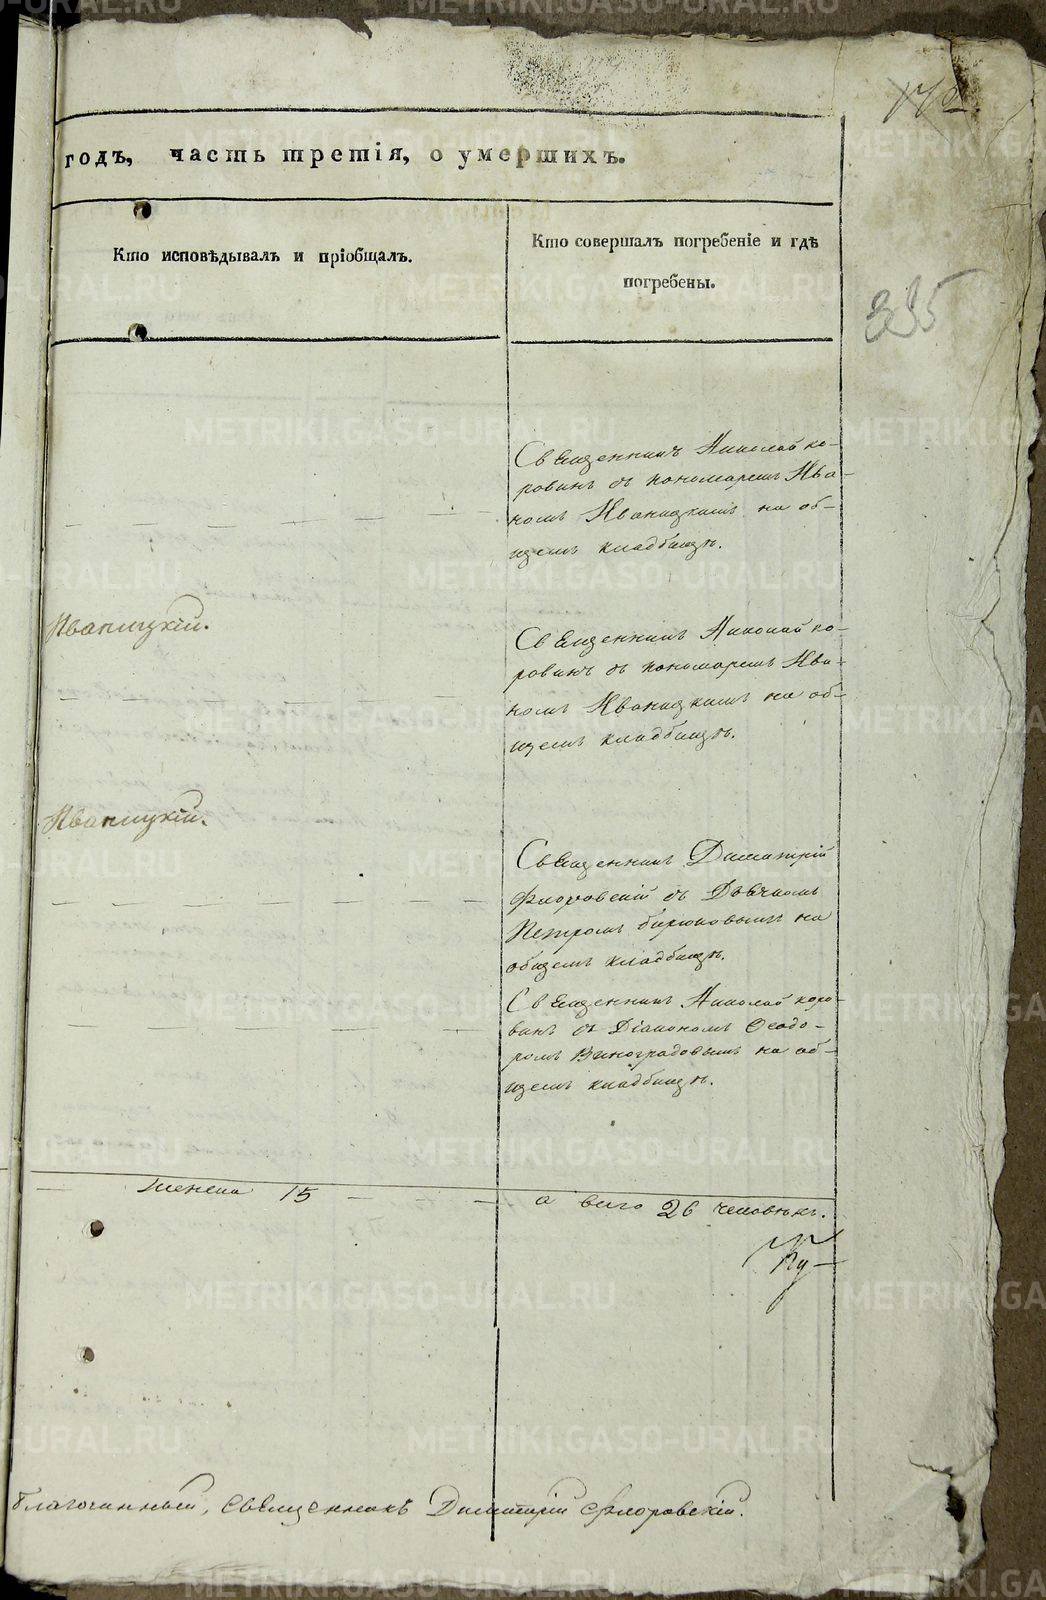 годъ, часть третія, о умершихъ.
335
Кто исповѣдывалъ и пріобщалъ.
Кто совершалъ погребеніе и гдѣ
погребены.
Священникъ Николай ко-
ровинъ съ пономаремъ Ива-
номъ Иваницкимъ на об-
щемъ кладбищѣ.
Иваницкій.
Священникъ Николай ко-
ровинъ съ пономаремъ Ива-
номъ Иваницкимъ на об-
щемъ кладбищѣ.
Иваницкій.
Священникъ Димитрій
Флоровскій съ Дьячкомъ
Петромъ бирюковымъ на
общемъ кладбищѣ.
Священникъ Николай коро-
винъ съ Діакономъ Ѳеодо-
ромъ Виноградовымъ на об-
щемъ кладбищѣ.
женска 15 а всего 26 человѣкъ.
благочинный, священникъ Димитрій Флоровскій.
METRIKI.GASO-URAL.RU